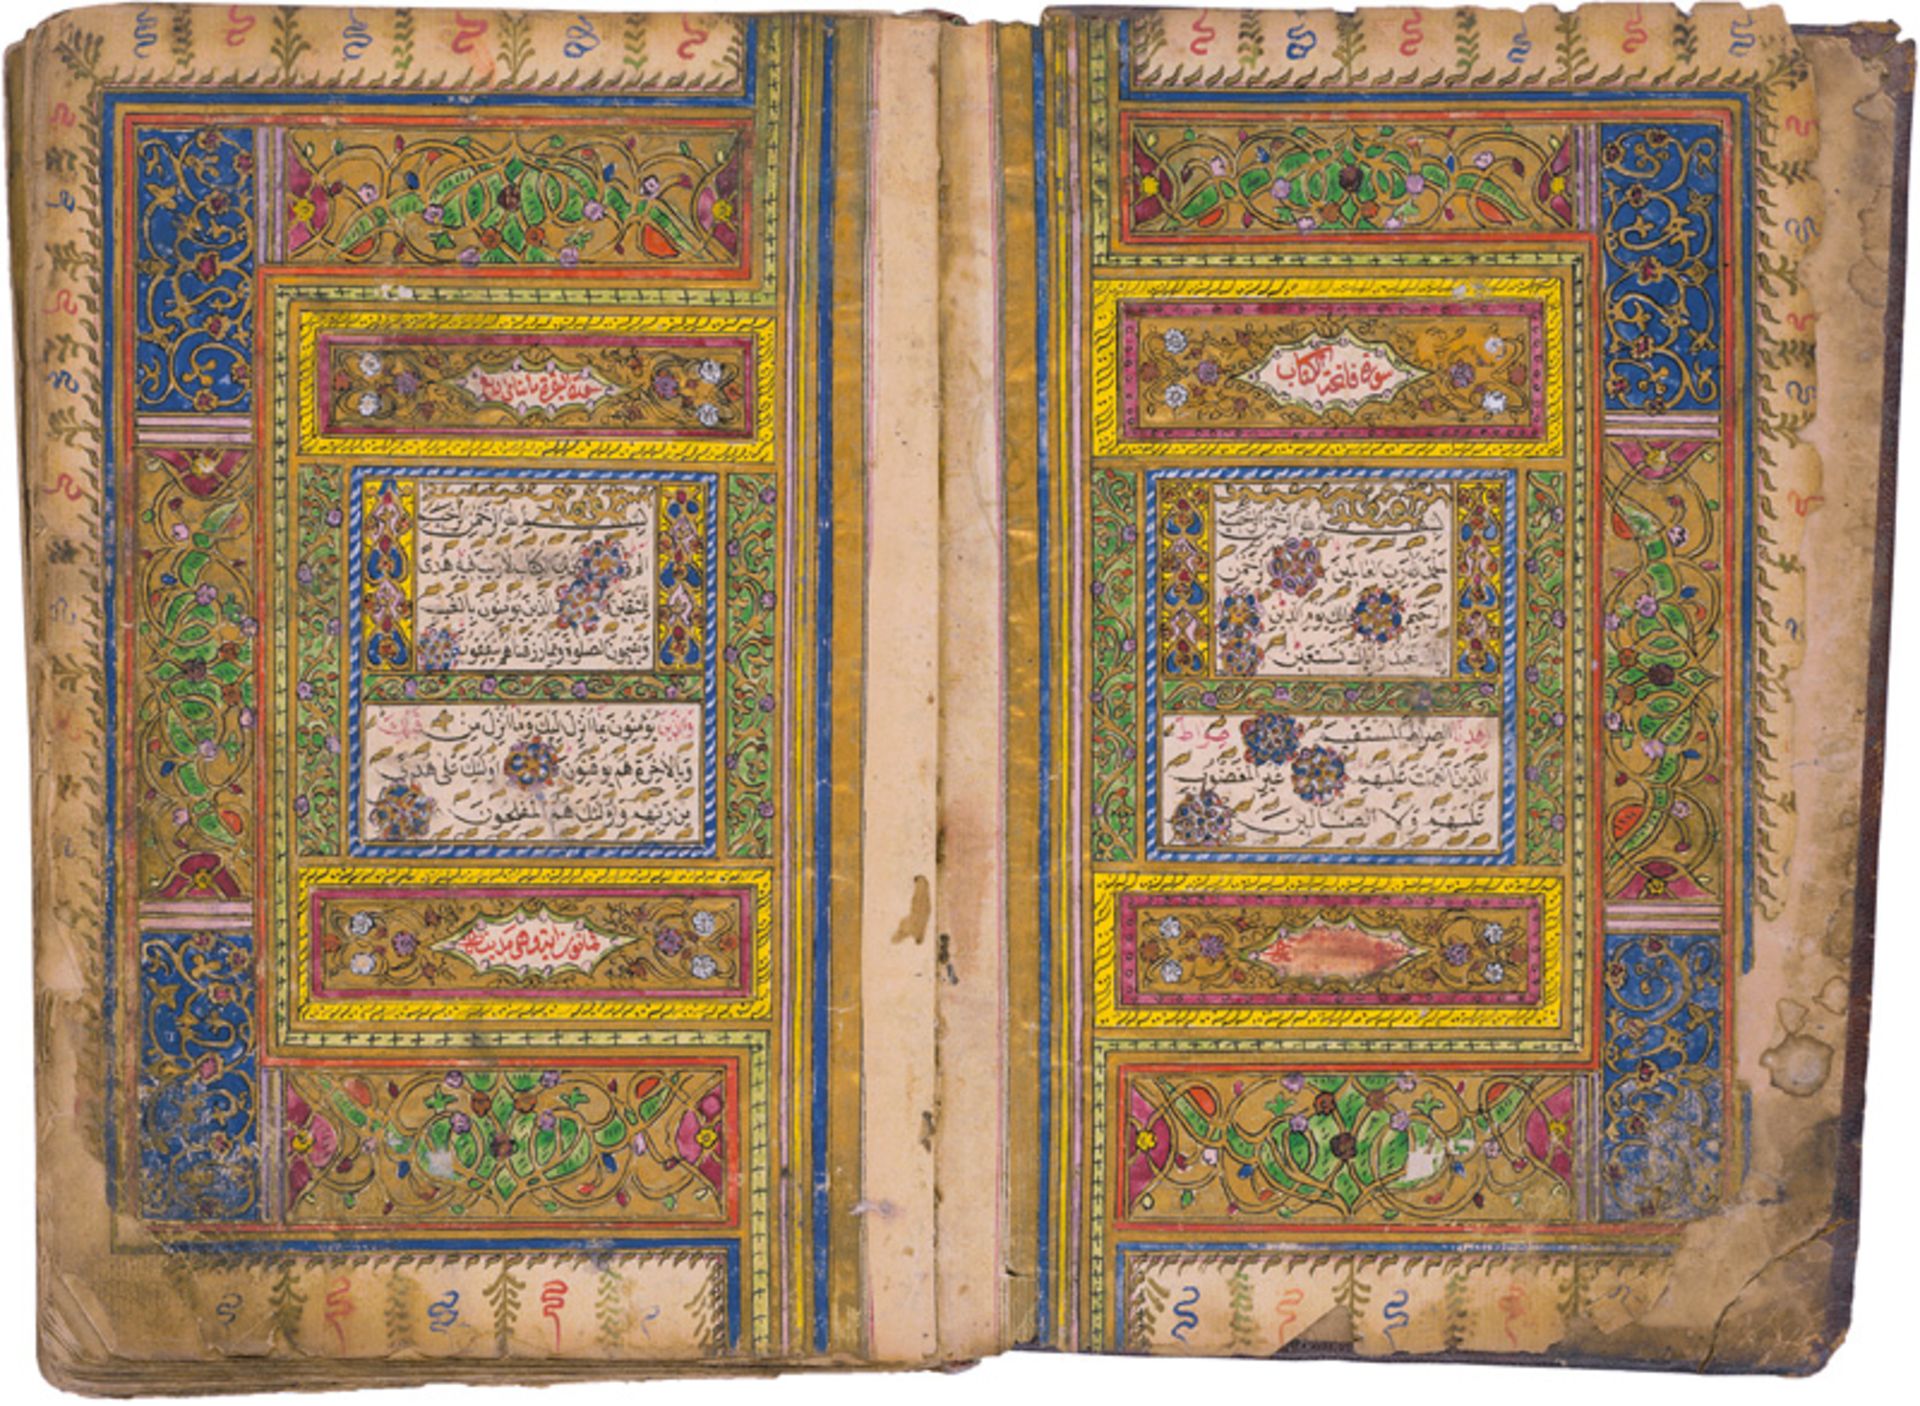 سورة فاتحة الكتاب
بسم الله الرحمن الرحيم
الحمد لله رب العالمين الرحمن
الرحيم مالك يوم الدين
اياك نعبد واياك نستعين
اهدنا الصراط المستقيم صراط
الذين انعمت عليهم غير المغضوب
عليهم ولا الضالين
سورة البقرة مائتان
بسم الله الرحمن الرحيم
الم ذلك الكتاب لا ريب فيه هدى
للمتقين الذين يؤمنون بالغيب
ويقيمون الصلوة ومما رزقناهم ينفقون
والذين يؤمنون بما انزل اليك وما انزل من قبلك
وبالاخرة هم يوقنون اولئك على هدى
من ربهم واولئك هم المفلحون
ثمانون اية وهي مدنية